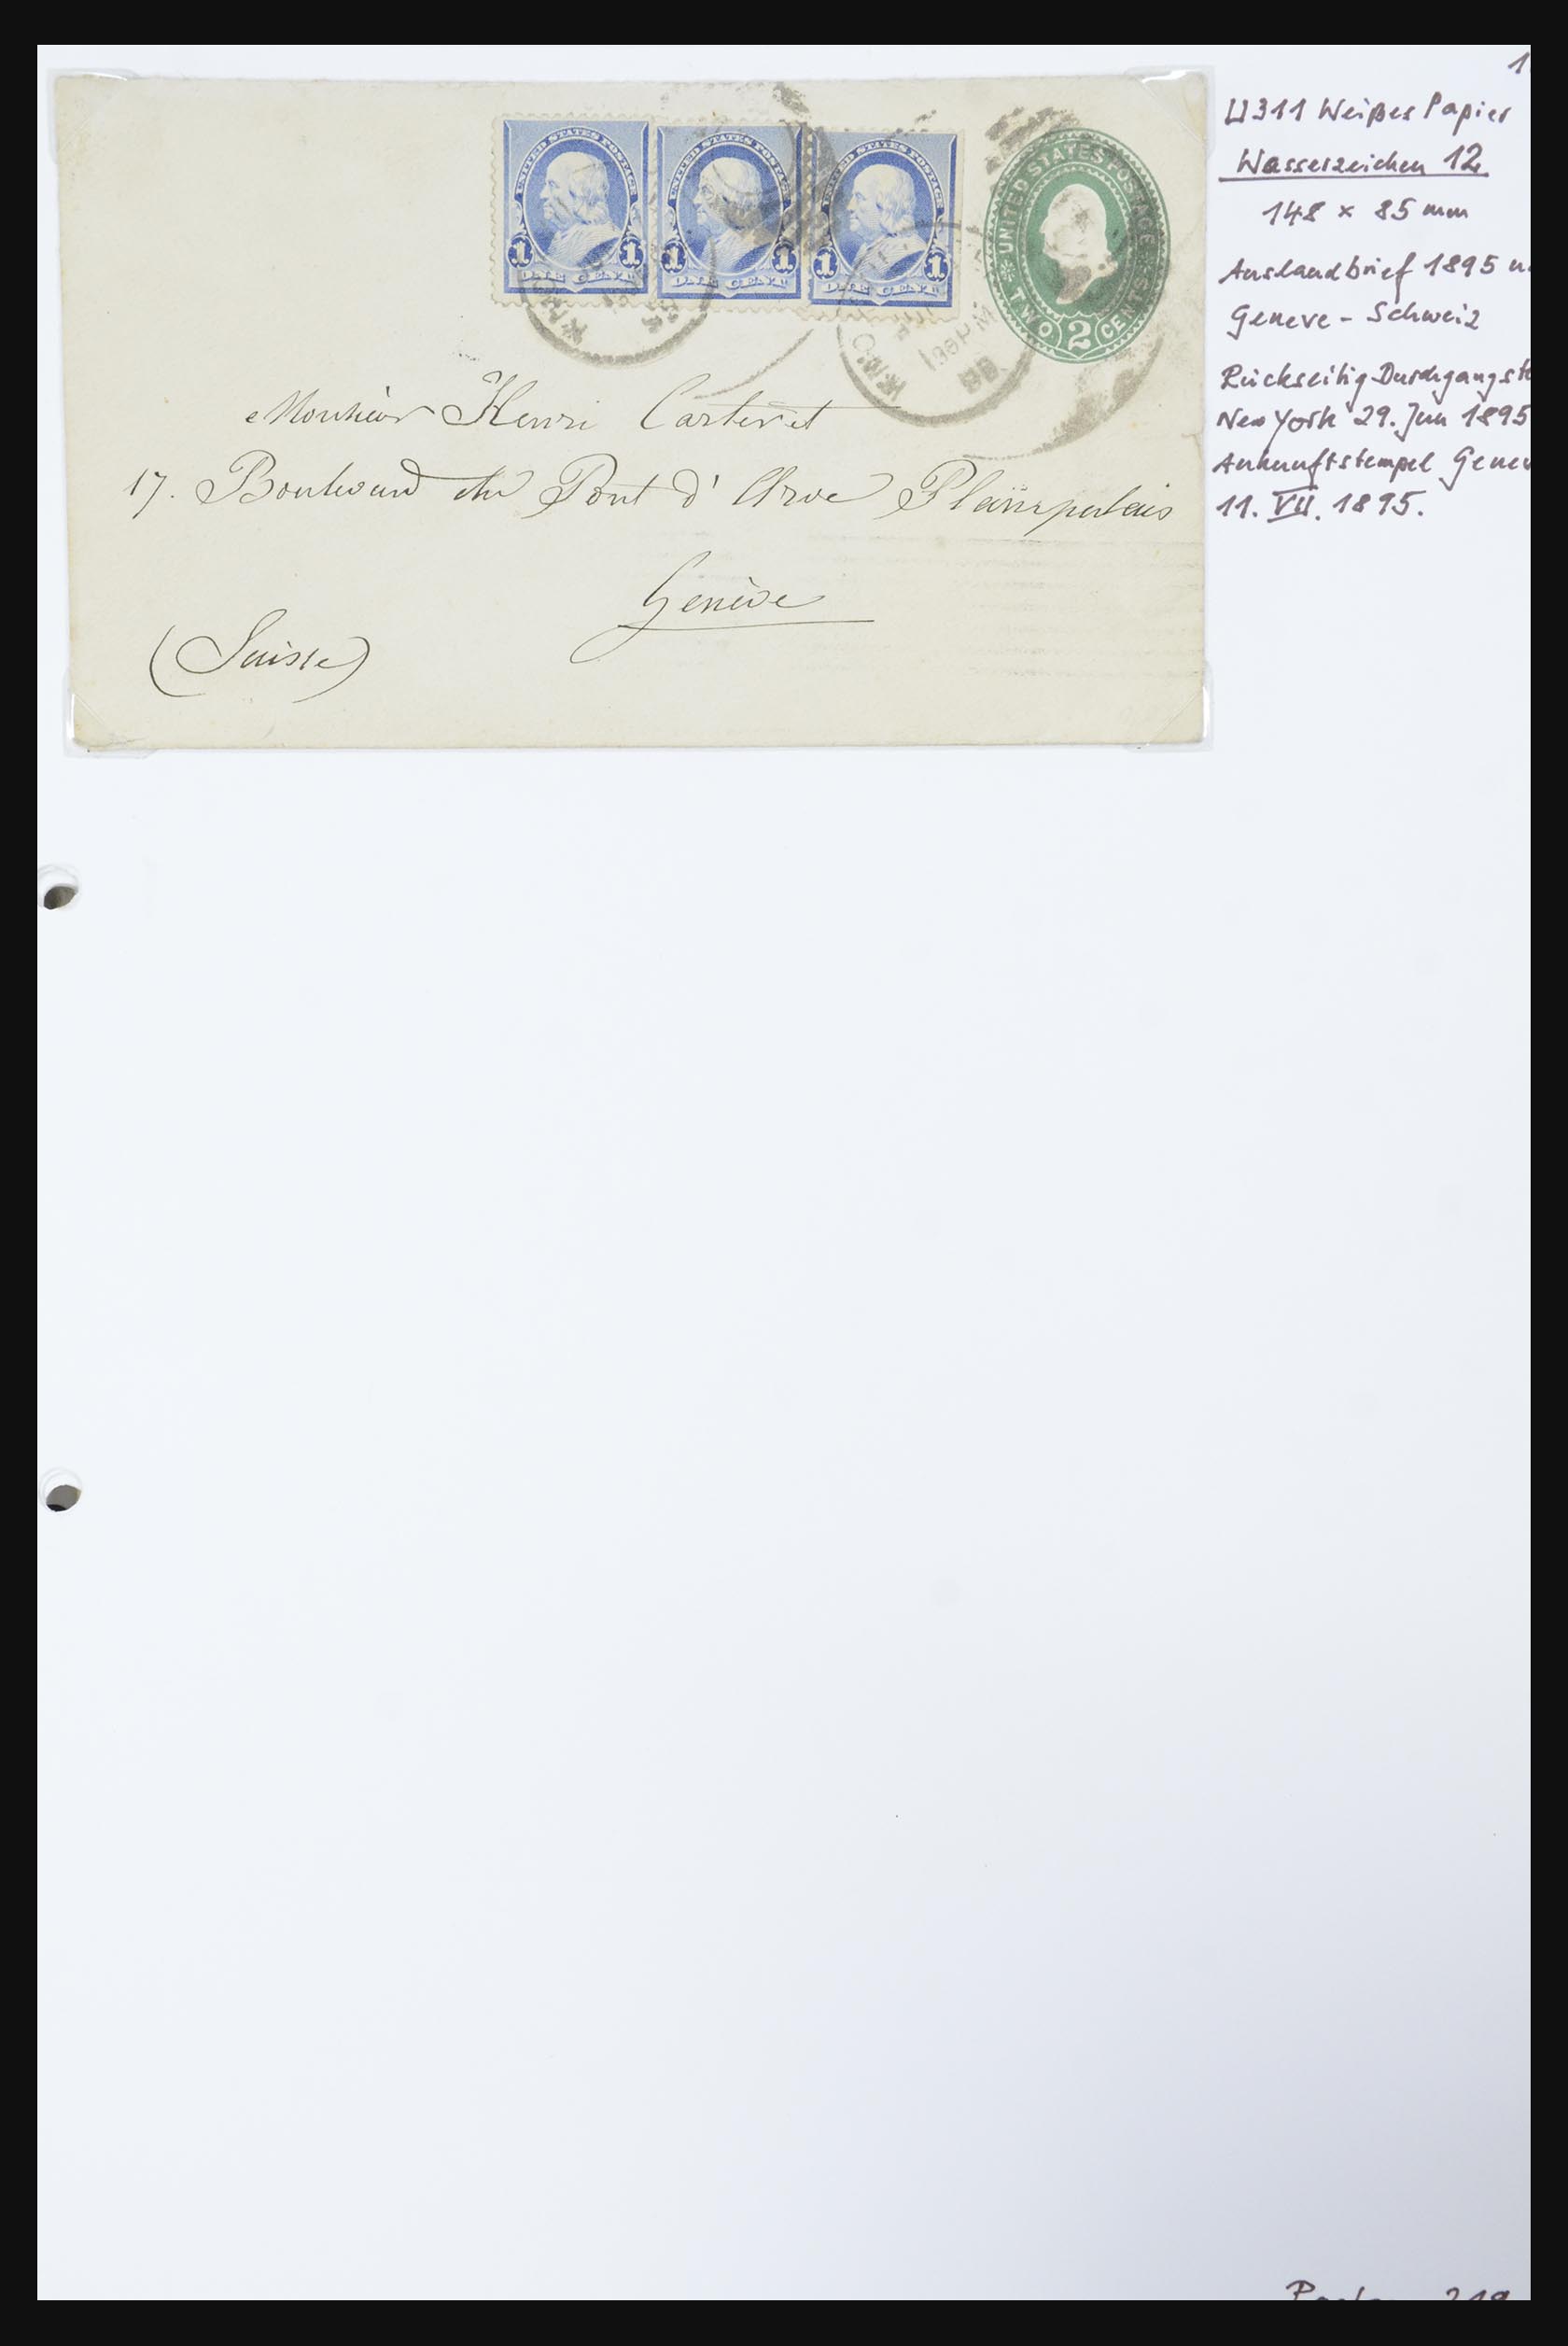 UNITED STATES POSTAGE
1 1
ONE CENT
UNITED STATES POSTAGE
1 1
ONE CENT
UNITED STATES POSTAGE
1 1
ONE CENT
UNITED STATES POSTAGE
TWO 2 CENTS
Monsieur Henri Carteret
17. Boulevard du Pont d'Arve Plainpalais
Genève
(Suisse)
1
U311 Weißes Papier
Wasserzeichen 12
148 x 85 mm
Auslandbrief 1895 n
Geneve - Schweiz
Rückseitig Durchgangst
New York 29. Jun 1895
Ankunftstempel Genev
11. VII. 1895.